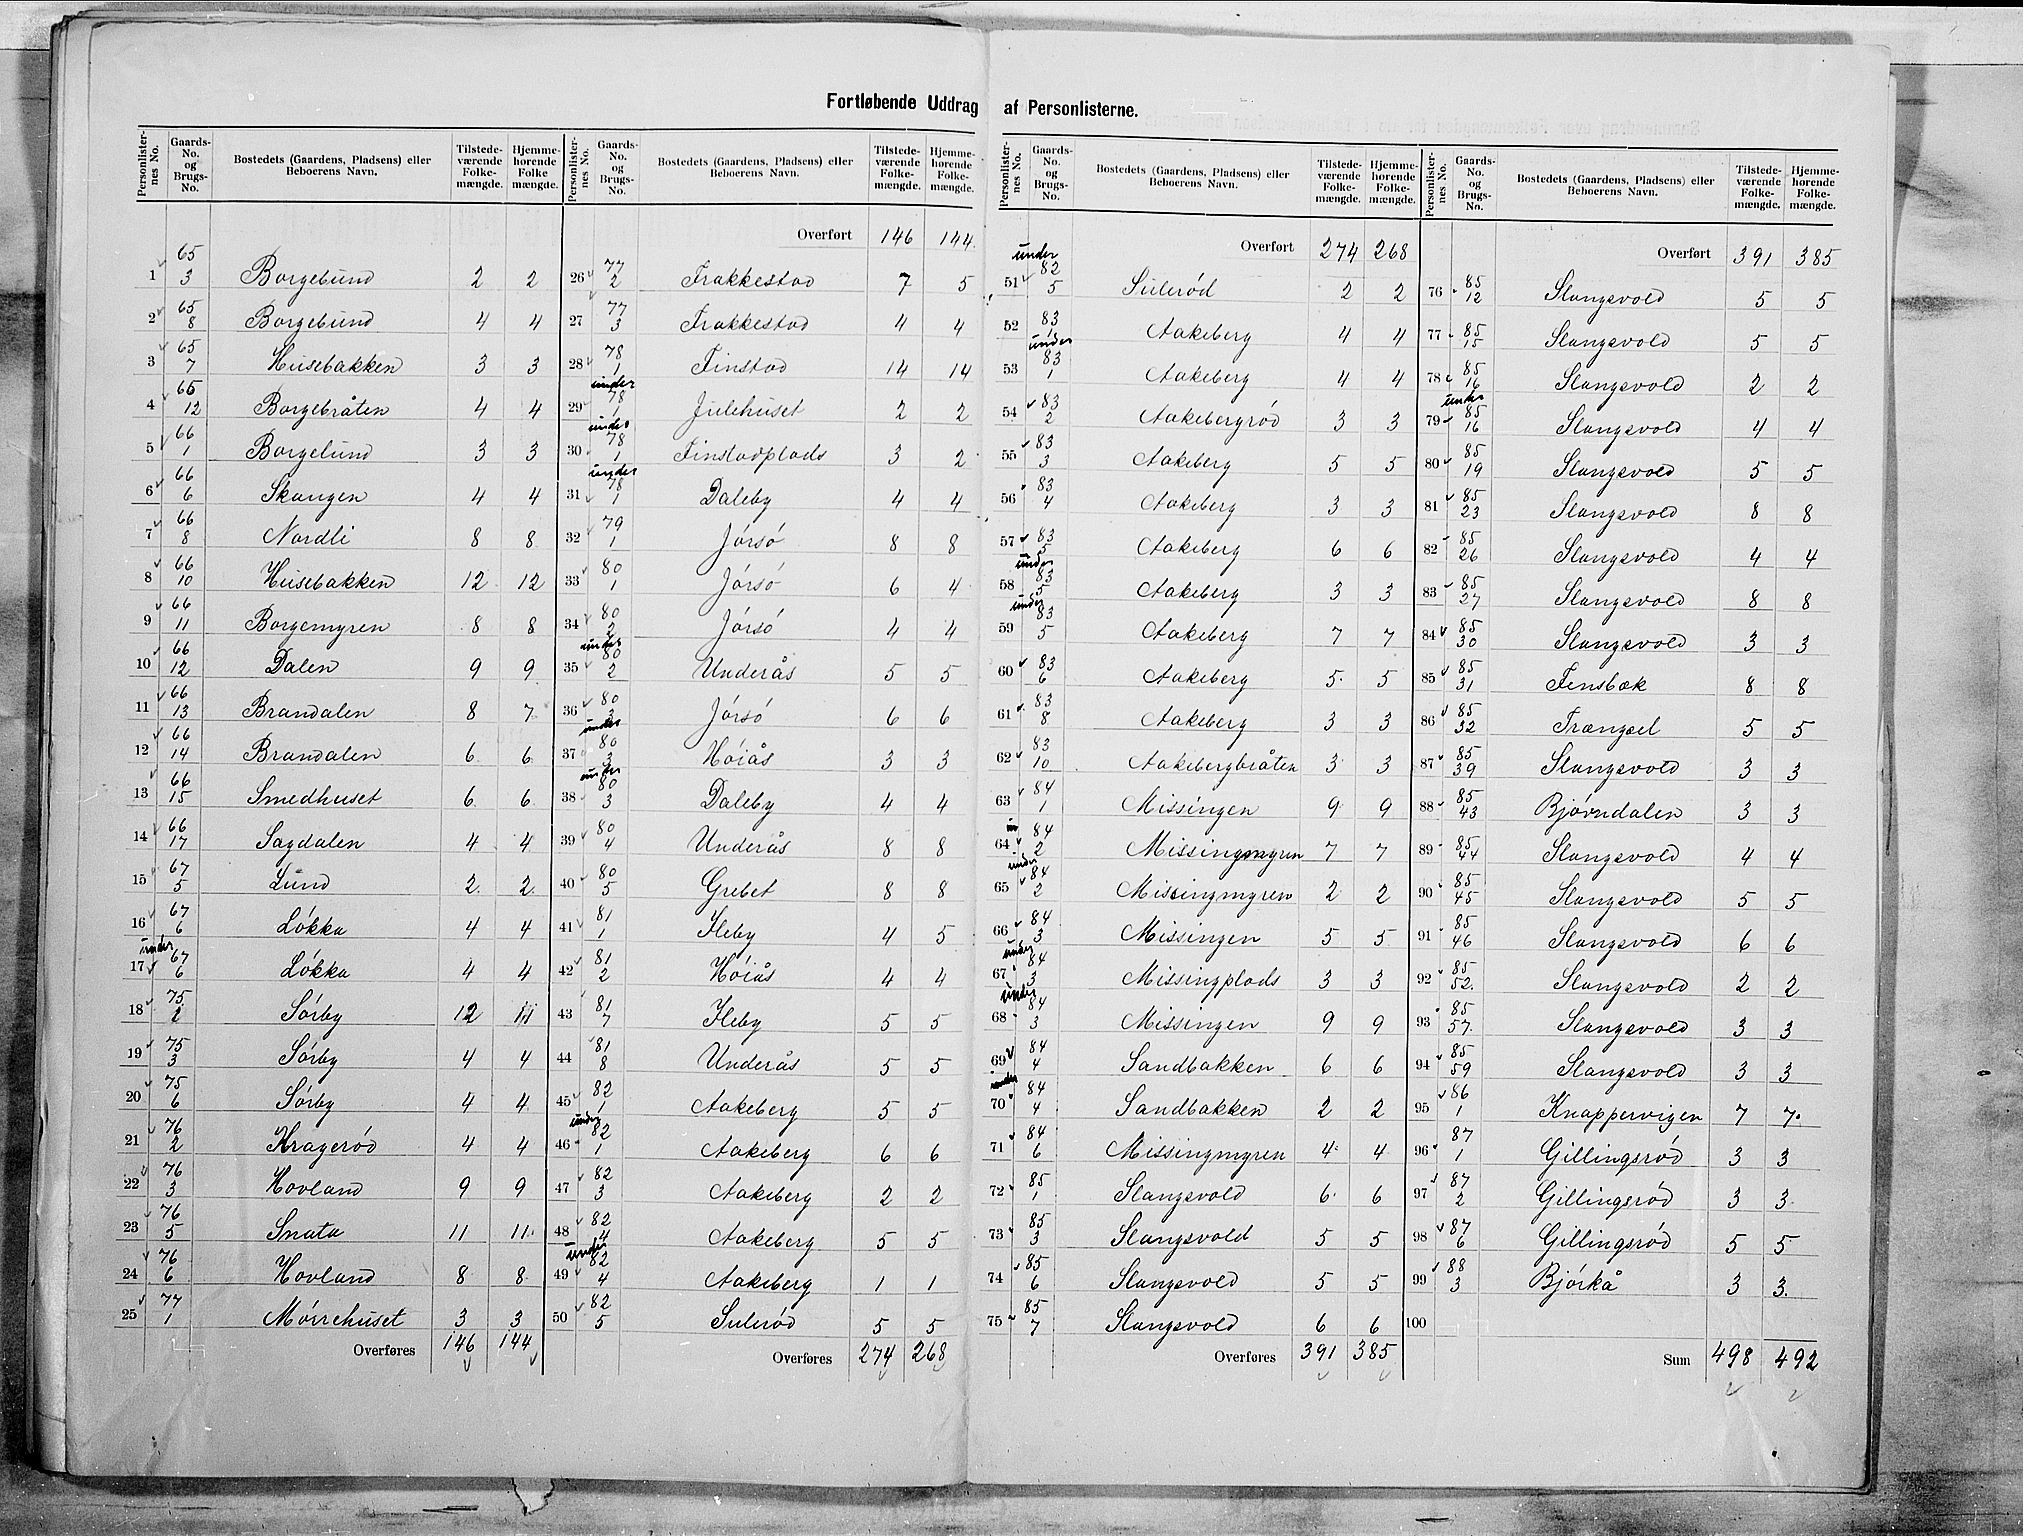 Fortløbende Uddrag af Personlisterne.
Personlisternes No. | Gaards-No. og Brugs-No. | Bostedets (Gaardens, Pladsens) eller Beboerens Navn. | Tilstedeværende Folkemængde. | Hjemmehørende Folkemængde.
1 65/3 Borgebund 2 2
2 65/8 Borgebund 4 4
3 65/7 Husebakken 3 3
4 65/12 Borgebråten 4 4
5 66/1 Borgelund 3 3
6 66/6 Skougen 4 4
7 66/8 Nordli 8 8
8 66/10 Husebakken 12 12
9 66/11 Borgemyren 8 8
10 66/12 Dalen 9 9
11 66/13 Brandalen 8 7
12 66/14 Brandalen 6 6
13 66/15 Smedhuset 6 6
14 66/17 Sagdalen 4 4
15 67/5 Lund 2 2
16 67/6 Løkka 4 4
17 under 67/6 Løkka 4 4
18 75/2 Sørby 12 11
19 75/3 Sørby 4 4
20 75/6 Sørby 4 4
21 76/2 Kragerød 4 4
22 76/3 Hovland 9 9
23 76/5 Snata 11 11
24 76/6 Hovland 8 8
25 77/1 Mørrehuset 3 3
Overføres 146 144
Personlisternes No. | Gaards-No. og Brugs-No. | Bostedets (Gaardens, Pladsens) eller Beboerens Navn. | Tilstedeværende Folkemængde. | Hjemmehørende Folkemængde.
Overført 146 144
26 77/2 Frakkestad 7 5
27 77/3 Frakkestad 4 4
28 78/1 Finstad 14 14
29 under 78/1 Julehuset 2 2
30 under 78/1 Finstadplads 3 2
31 under 78/1 Daleby 4 4
32 79/1 Jørsø 8 8
33 80/1 Jørsø 6 4
34 80/2 Jørsø 4 4
35 under 80/2 Underås 5 5
36 80/3 Jørsø 6 6
37 under 80/3 Høiås 3 3
38 under 80/3 Daleby 4 4
39 80/4 Underås 8 8
40 80/5 Grebet 8 8
41 81/1 Ileby 4 5
42 81/2 Høiås 4 4
43 81/7 Ileby 5 5
44 81/8 Underås 5 5
45 82/1 Aakeberg 5 5
46 under 82/1 Aakeberg 6 6
47 82/3 Aakeberg 2 2
48 82/4 Aakeberg 5 5
49 under 82/4 Aakeberg 1 1
50 82/5 Sulerød 5 5
Overføres 274 268
Personlisternes No. | Gaards-No. og Brugs-No. | Bostedets (Gaardens, Pladsens) eller Beboerens Navn. | Tilstedeværende Folkemængde. | Hjemmehørende Folkemængde.
Overført 274 268
51 under 82/5 Sulerød 2 2
52 83/1 Aakeberg 4 4
53 under 83/1 Aakeberg 4 4
54 83/2 Aakebergrød 3 3
55 83/3 Aakeberg 5 5
56 83/4 Aakeberg 3 3
57 83/5 Aakeberg 6 6
58 under 83/5 Aakeberg 3 3
59 under 83/5 Aakeberg 7 7
60 83/6 Aakeberg 5 5
61 83/8 Aakeberg 3 3
62 83/10 Aakebergbråten 3 3
63 84/1 Missingen 9 9
64 84/2 Missingmyren 7 7
65 under 84/2 Missingmyren 2 2
66 84/3 Missingen 5 5
67 under 84/3 Missingplads 3 3
68 under 84/3 Missingen 9 9
69 84/4 Sandbakken 6 6
70 under 84/4 Sandbakken 2 2
71 84/6 Missingmyren 4 4
72 85/1 Slangsvold 6 6
73 85/3 Slangsvold 5 5
74 85/6 Slangsvold 5 5
75 85/7 Slangsvold 6 6
Overføres 391 385
Personlisternes No. | Gaards-No. og Brugs-No. | Bostedets (Gaardens, Pladsens) eller Beboerens Navn. | Tilstedeværende Folkemængde. | Hjemmehørende Folkemængde.
Overført 391 385
76 85/12 Slangsvold 5 5
77 85/15 Slangsvold 5 5
78 85/16 Slangsvold 2 2
79 under 85/16 Slangsvold 4 4
80 85/19 Slangsvold 5 5
81 85/23 Slangsvold 8 8
82 85/26 Slangsvold 4 4
83 85/27 Slangsvold 8 8
84 85/30 Slangsvold 3 3
85 85/31 Fensbæk 8 8
86 85/32 Trængsel 5 5
87 85/39 Slangsvold 3 3
88 85/43 Bjørndalen 3 3
89 85/44 Slangsvold 4 4
90 85/45 Slangsvold 5 5
91 85/46 Slangsvold 6 6
92 85/52 Slangsvold 2 2
93 85/57 Slangsvold 3 3
94 85/59 Slangsvold 3 3
95 86/1 Knappervigen 7 7
96 87/1 Gillingsrød 3 3
97 87/2 Gillingsrød 3 3
98 87/6 Gillingsrød 5 5
99 88/3 Bjørkå 3 3
100
Sum 498 492